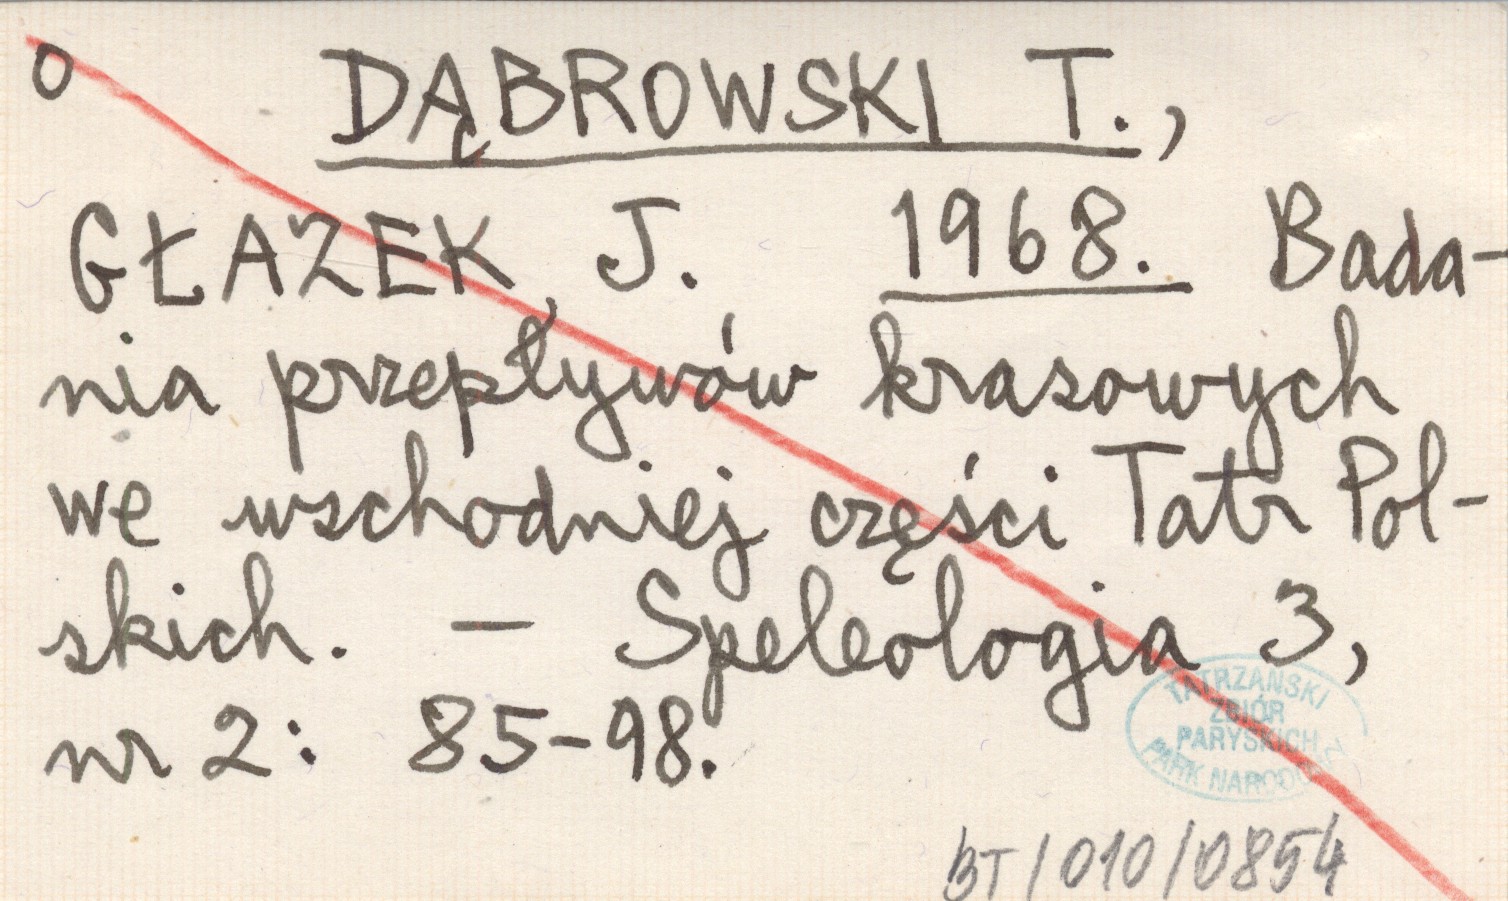 O DĄBROWSKI T.,
GŁAZEK, J. 1968. Bada-
nia przepływów krasowych
we wschodniej części Tatr Pol-
skich. — Speleologia 3,
nr 2: 85-98.
TATRZAŃSKI
ZBIÓR
PARYSKICH
PARK NARODOWY
BT/010/0854